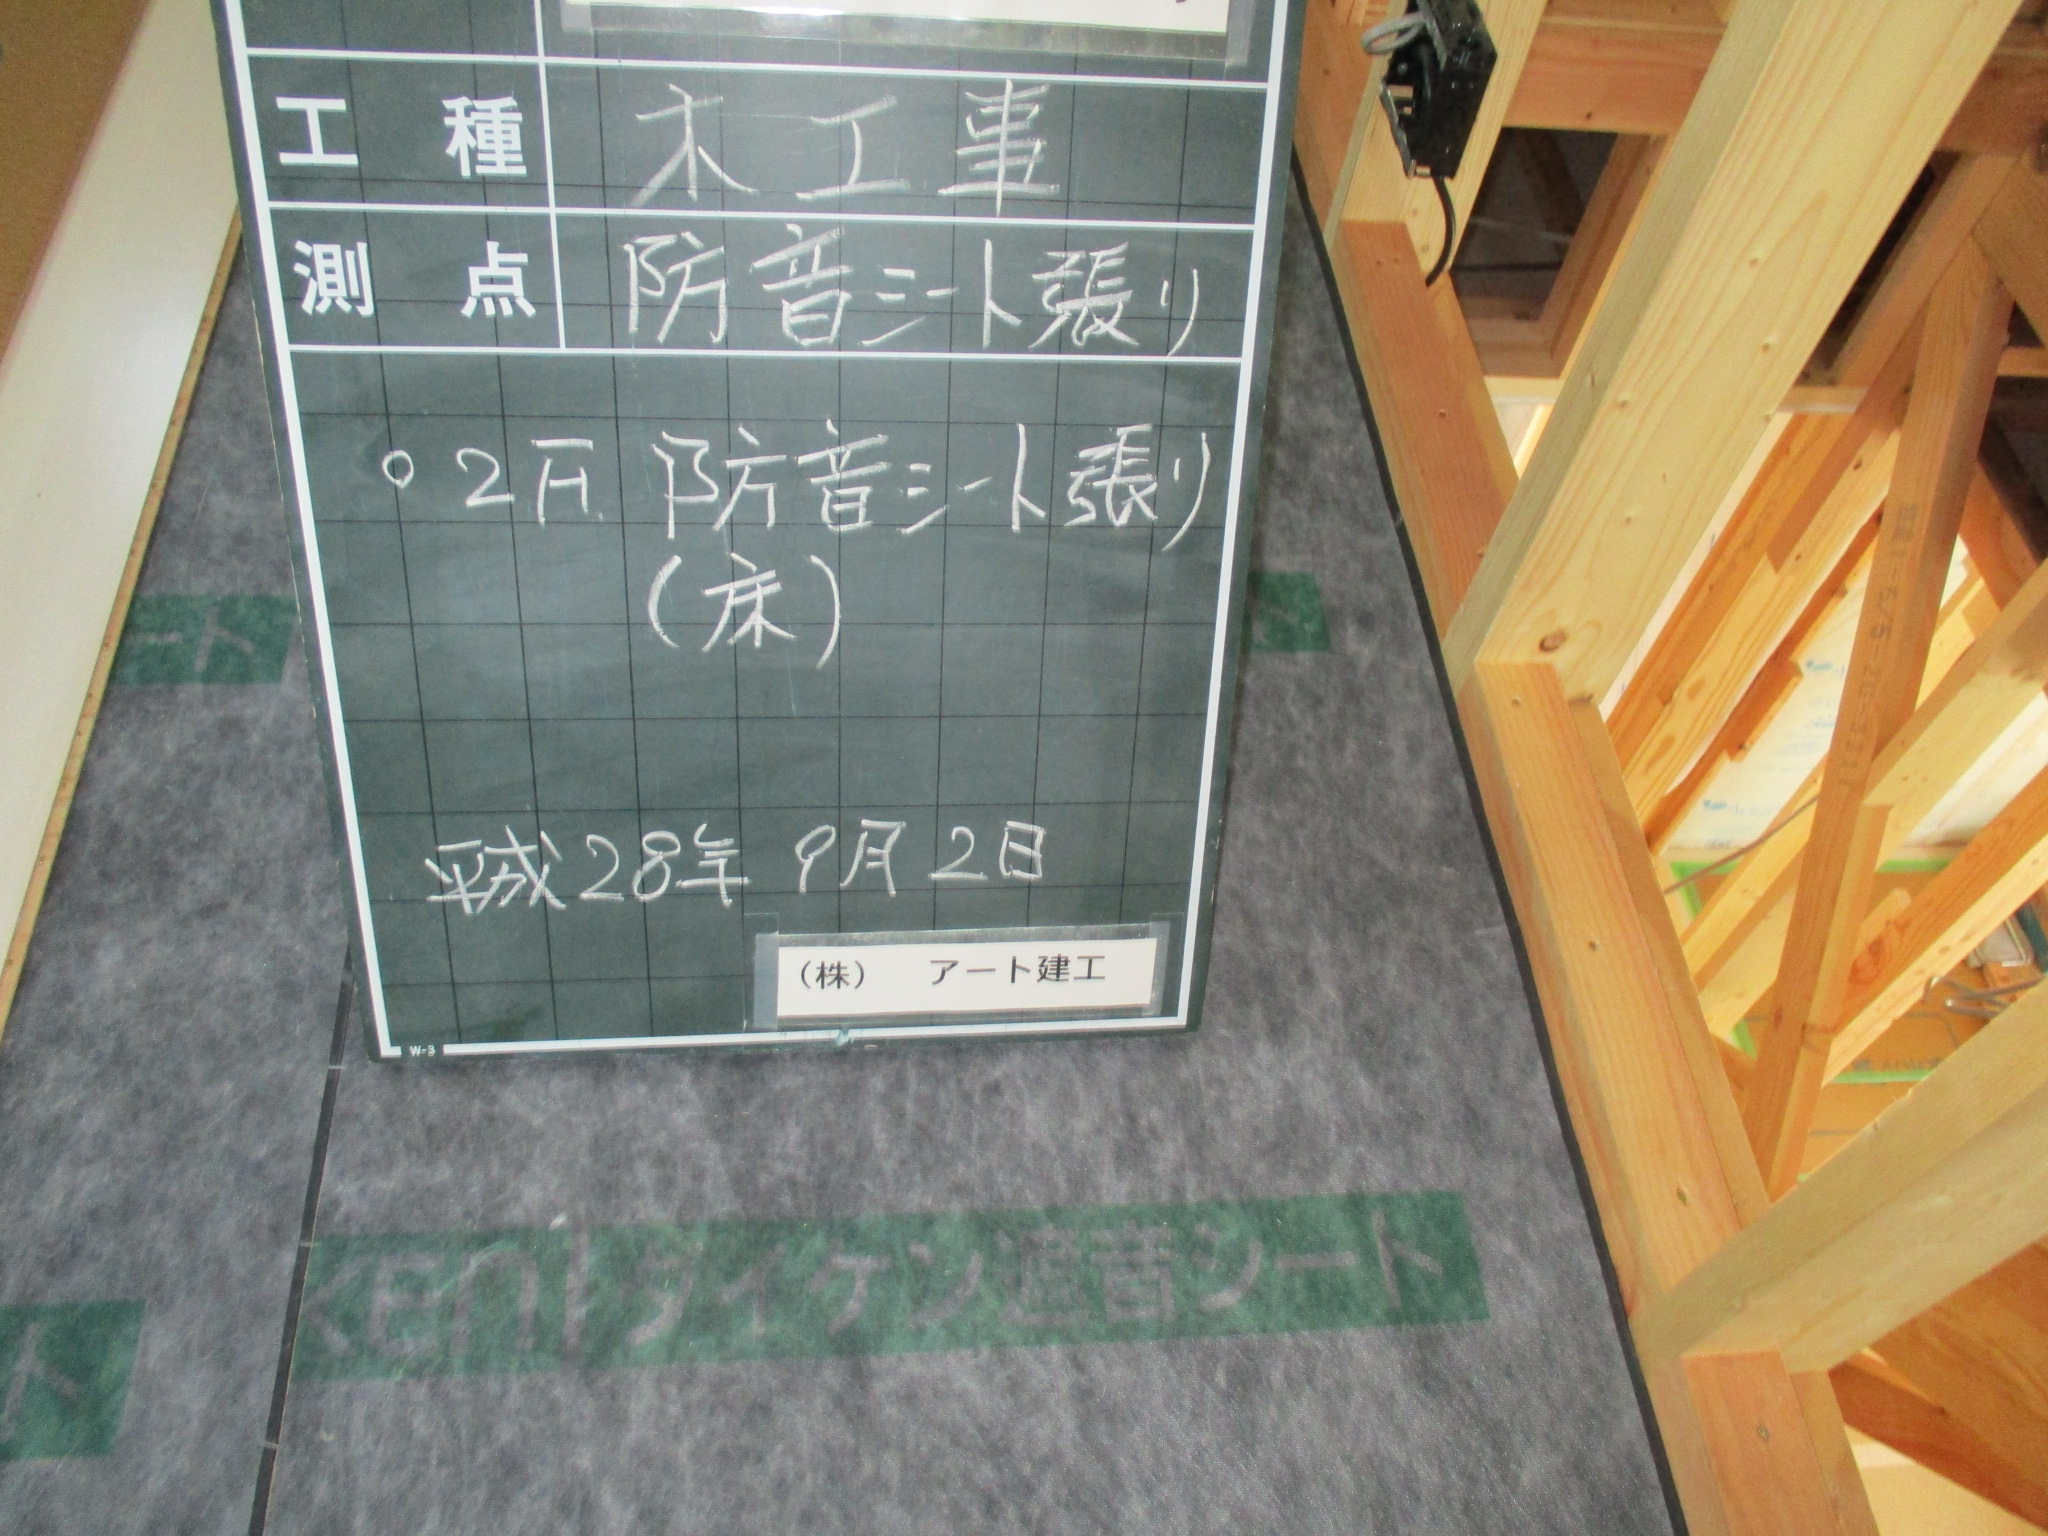 工種 木工事
測点 防音シート張り
○ 2F 防音シート張り
(床)
平成28年 9月 2日
(株) アート建工
W-3
ート
ト
ken ダイケン遮音シート
ト